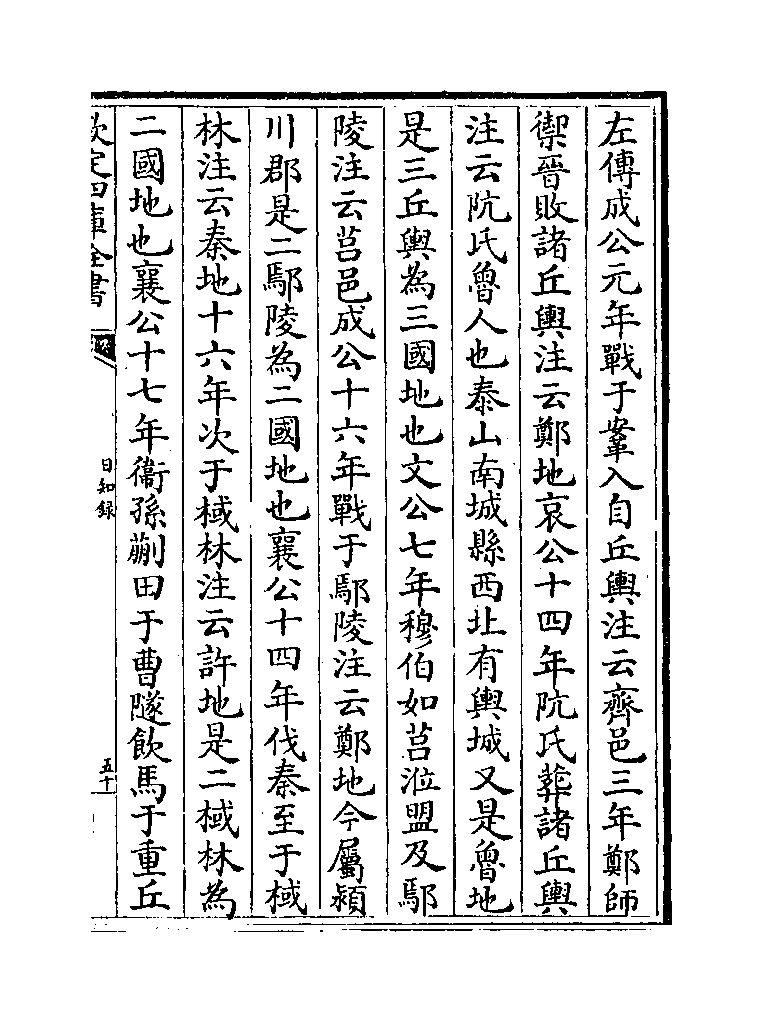 左傳成公元年戰于鞌入自丘輿注云齊邑三年鄭師
禦晉敗諸丘輿注云鄭地哀公十四年阬氏葬諸丘輿
注云阬氏魯人也泰山南城縣西北有輿城又是魯地
是三丘輿為三國地也文公七年穆伯如莒涖盟及鄢
陵注云莒邑成公十六年戰于鄢陵注云鄭地今屬潁
川郡是二鄢陵為二國地也襄公十四年伐秦至于棫
林注云秦地十六年次于棫林注云許地是二棫林為
二國地也襄公十七年衞孫蒯田于曹隧飲馬于重丘
欽定四庫全書
日知錄
五十一